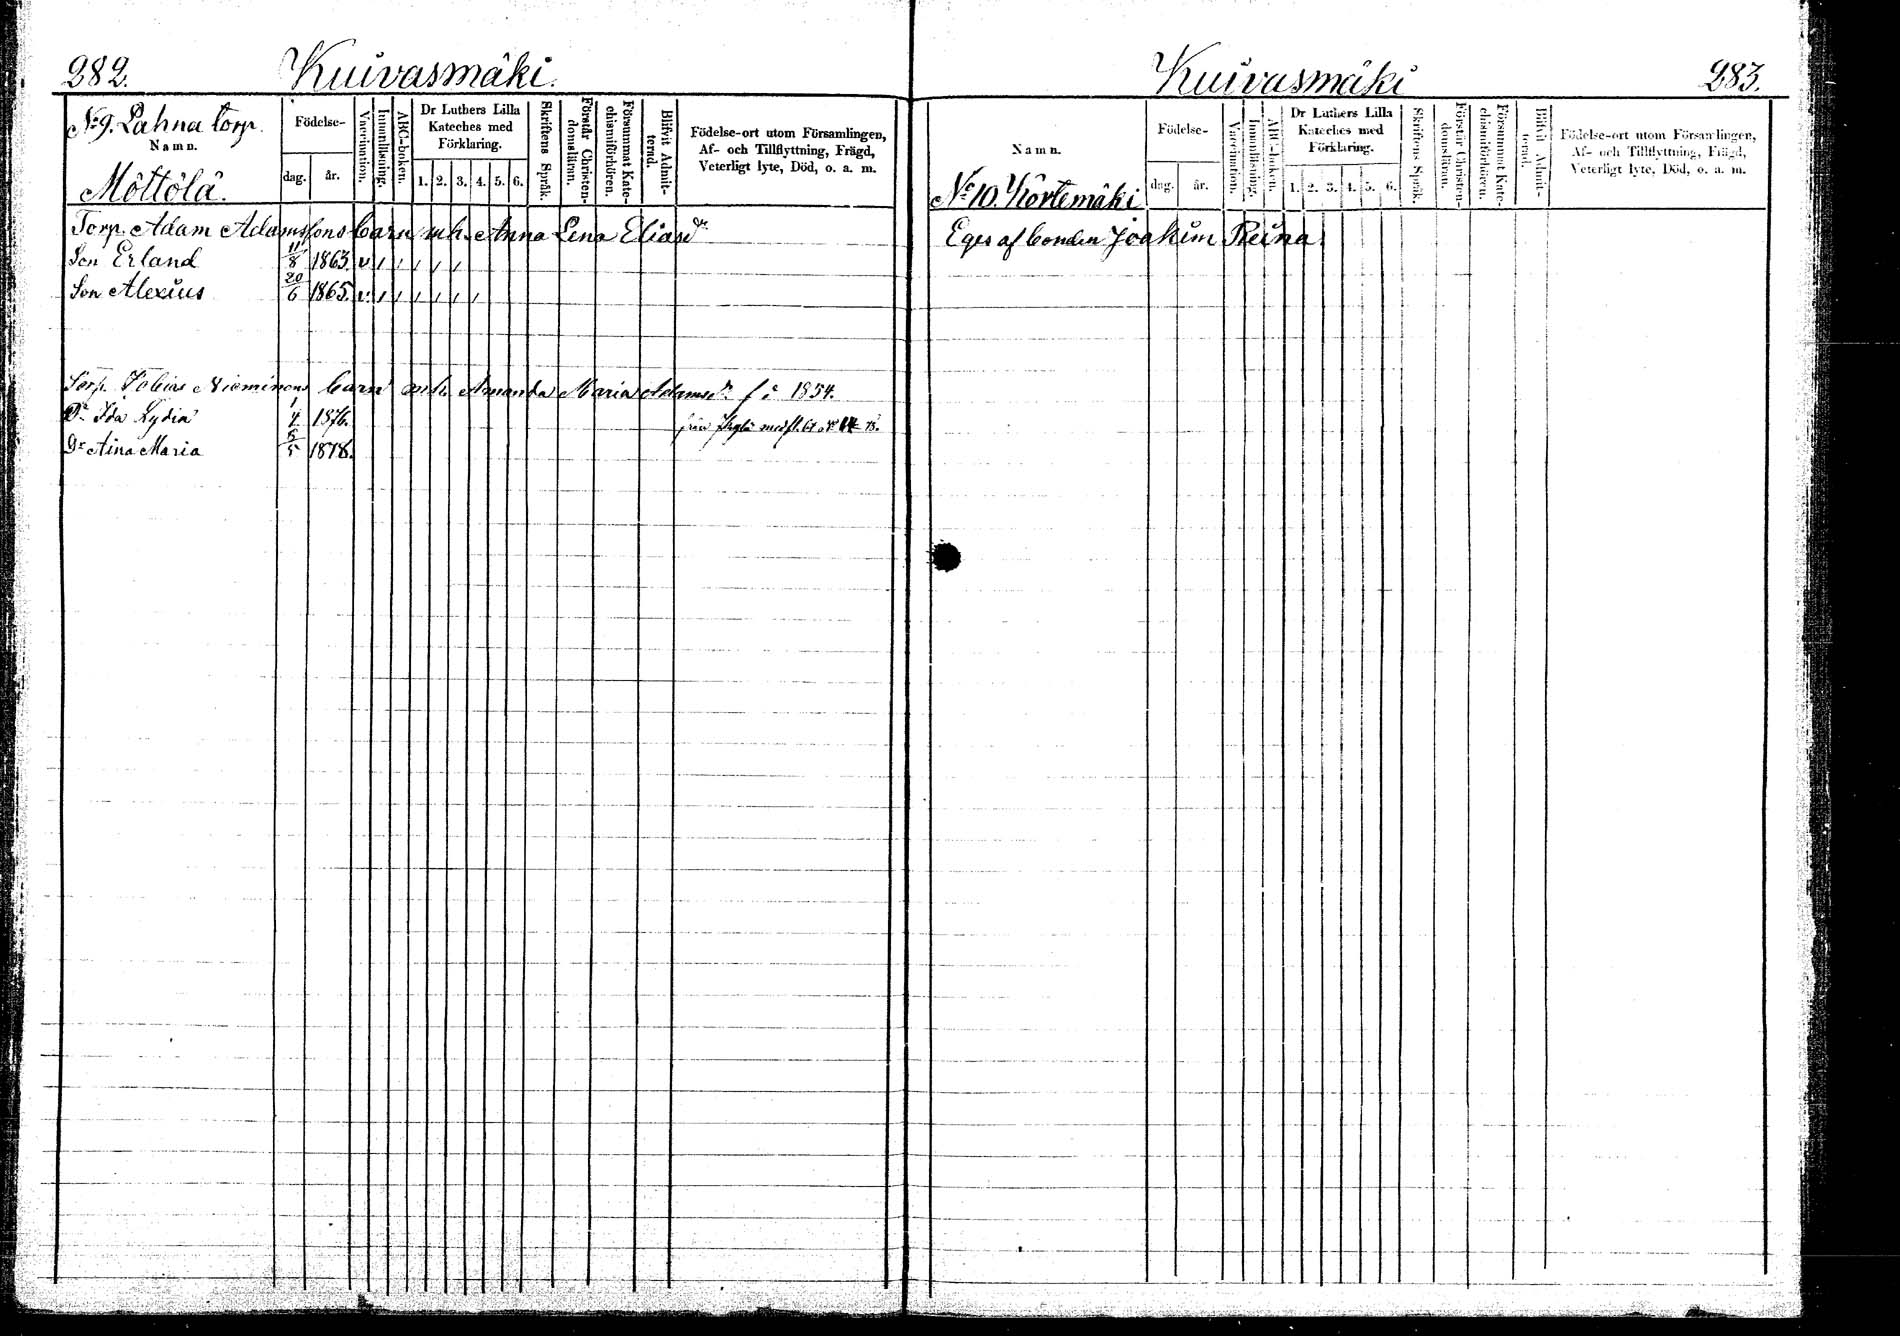 282. Kuivasmäki.
No 9. Lahna torp.
Namn.
Möttölä.
Födelse-
dag. år.
Vaccination.
Innanläsning.
ABC-boken.
Dr Luthers Lilla
Kateches med
Förklaring.
1. 2. 3. 4. 5. 6.
Skriftens Språk.
Förstår Christen-
domsläran.
Försummat Kate-
chismiförhören.
Blifvit Admit-
terad.
Födelse-ort utom Församlingen,
Af- och Tillflyttning, Frägd,
Veterligt lyte, Död, o. a. m.
Torp. Adam Adamssons barn m.h. Anna Lena Eliasdr
Son Erland 11/8 1863. v , , , , ,
Son Alexius 20/6 1865. v , , , , , ,
Torp. Tobias Nieminens barn m.h. Amanda Maria Adamsdr f. 1854.
Dr Ida Lydia 1/4 1876. från
Dr Aina Maria 5/5 1878.
Kuivasmäki 283.
Namn.
No 10. Körtemäki
Födelse-
dag. år.
Vaccination.
Innanläsning.
ABC-boken.
Dr Luthers Lilla
Kateches med
Förklaring.
1. 2. 3. 4. 5. 6.
Skriftens Språk.
Förstår Christen-
domsläran.
Försummat Kate-
chismiförhören.
Blifvit Admit-
terad.
Födelse-ort utom Församlingen,
Af- och Tillflyttning, Frägd,
Veterligt lyte, Död, o. a. m.
Eges af bonden Joakim Reina